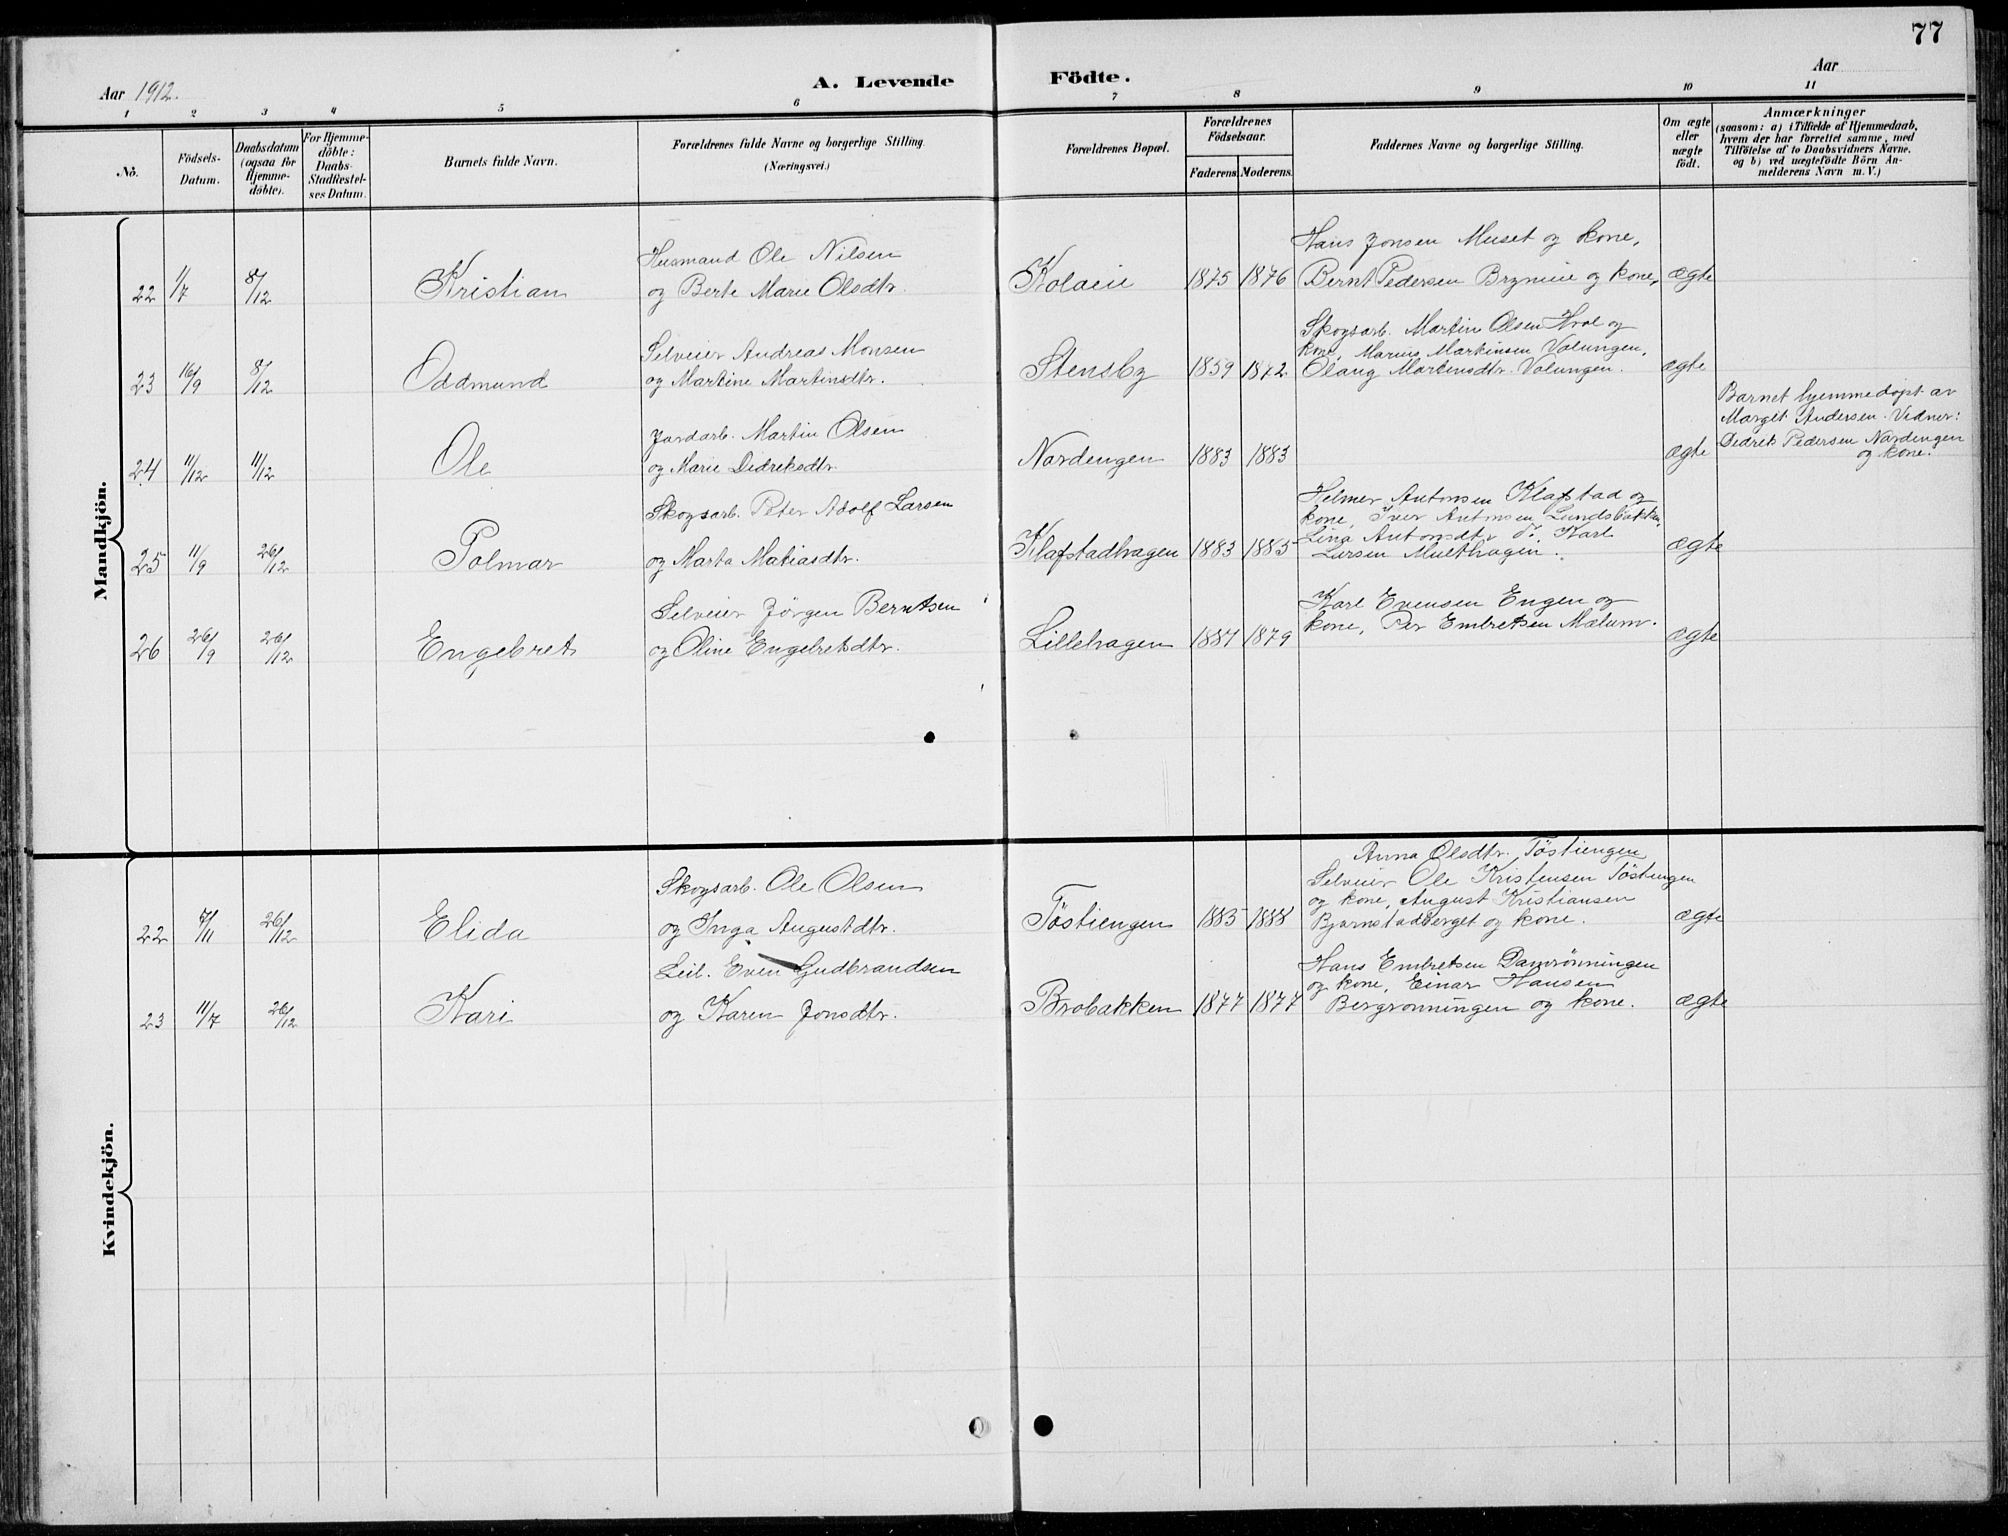 77
Aar 1912.
A. Levende
Födte.
Aar
1 2 3 4 5 6 7 8 9 10 11
No.
Födsels-
Datum.
Daabsdatum
(ogsaa for
Hjemme-
döbte).
For Hjemme-
döbte:
Daabs
Stadfæstel-
ses Datum.
Barnets fulde Navn.
Forældrenes fulde Navne og borgerlige Stilling.
(Næringsvei.)
Forældrenes Bopæl.
Forældrenes
Födselsaar.
Faderens. Moderens.
Faddernes Navne og borgerlige Stilling.
Om ægte
eller
uægte
födt.
Anmærkninger
(saasom: a) i Tilfælde af Hjemmedaab,
hvem der har forrettet samme, med
Tilföielse af to Daabsvidners Navne.
og b) ved uægtefödte Börn An-
melderens Navn m. V.)
Mandkjön.
22 1/7 8/12 Kristian
Husmand Ole Nilsen
og Berte Marie Olsdtr.
Kolaeie 1875 1876
Hans Jonsen Muset og kone,
Bernt Pedersen Brynieie og kone,
ægte
23 16/9 8/12 Oddmund
Selveier Andreas Monsen
og Martine Martinsdtr.
Stensby 1859 1872
Skogsarb. Martin Olsen Hval og
kone, Marius Martinsen Volungen,
Olaug Martinsdtr. Volungen.
ægte
24 11/12 11/12 Ole
Jordarb. Martin Olsen
og Marie Didreksdtr
Nordengen 1883 1883
ægte
Barnet hjemmedøpt av
Margit Andersen. Vidner:
Didrek Pedersen Nordengen
og kone.
25 11/9 26/12 Polmar
Skogsarb. Peter Adolf Larsen
og Marta Matiasdtr.
Klafstadhagen 1883 1885
Helmer Antonsen Klafstad og
kone, Iver Antonsen Lundsbakken,
Lina Antonsdtr. do. Karl
Larsen Multhagen.
ægte
26 26/9 26/12 Engebret
Selveier Jørgen Berntsen
og Oline Engebretsdtr.
Lillehagen 1887 1879
Karl Evensen Engen og
kone, Per Embretsen Mælum.
ægte
Kvindekjön.
22 7/11 26/12 Elida
Skogsarb. Ole Olsen
og Inga Augustdtr.
Töstiengen 1885 1888
Anna Olsdtr. Töstiengen
Selveier Ole Kristensen Töstengen
og kone, August Kristiansen
Bjørnstadberget og kone.
ægte
23 11/7 26/12 Kari
Leil. Even Gudbrandsen
og Karen Jonsdtr.
Brobakken 1877 1877
Hans Embretsen Damrønningen
og kone, Einar Hansen
Bergrønningen og kone.
ægte